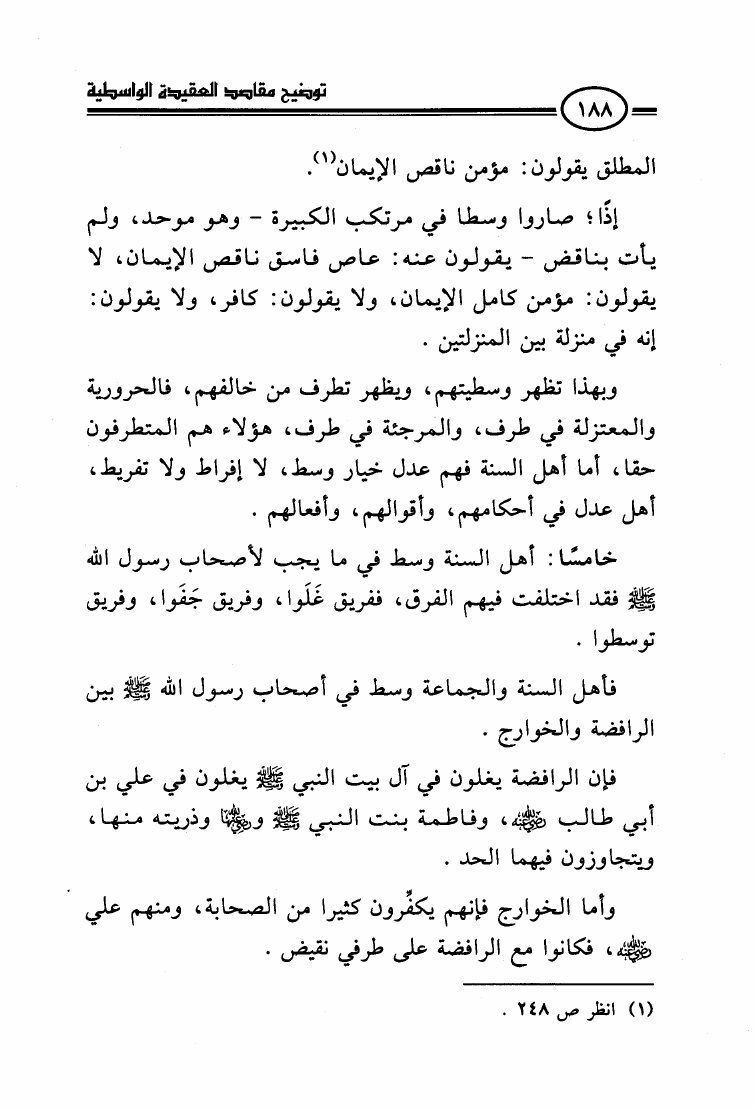 توضيح مقاصد العقيدة الواسطية
١٨٨
المطلق يقولون: مؤمن ناقص الإيمان(١).
إذًا؛ صاروا وسطا في مرتكب الكبيرة - وهو موحد، ولم
يأت بناقض - يقولون عنه: عاص فاسق ناقص الإيمان، لا
يقولون: مؤمن كامل الإيمان، ولا يقولون: كافر، ولا يقولون:
إنه في منزلة بين المنزلتين .
وبهذا تظهر وسطيتهم، ويظهر تطرف من خالفهم، فالحرورية
والمعتزلة في طرف، والمرجئة في طرف، هؤلاء هم المتطرفون
حقا، أما أهل السنة فهم عدل خيار وسط، لا إفراط ولا تفريط،
أهل عدل في أحكامهم، وأقوالهم، وأفعالهم .
خامسًا: أهل السنة وسط في ما يجب لأصحاب رسول الله
ﷺ فقد اختلفت فيهم الفرق، ففريق غَلَوا، وفريق جَفَوا، وفريق
توسطوا .
فأهل السنة والجماعة وسط في أصحاب رسول الله ﷺ بين
الرافضة والخوارج .
فإن الرافضة يغلون في آل بيت النبي ﷺ يغلون في علي بن
أبي طالب رضي الله عنه، وفاطمة بنت النبي ﷺ ورضي الله عنها وذريته منها،
ويتجاوزون فيهما الحد .
وأما الخوارج فإنهم يكفِّرون كثيرا من الصحابة، ومنهم علي
رضي الله عنه، فكانوا مع الرافضة على طرفي نقيض .
(١) انظر ص ٢٤٨ .